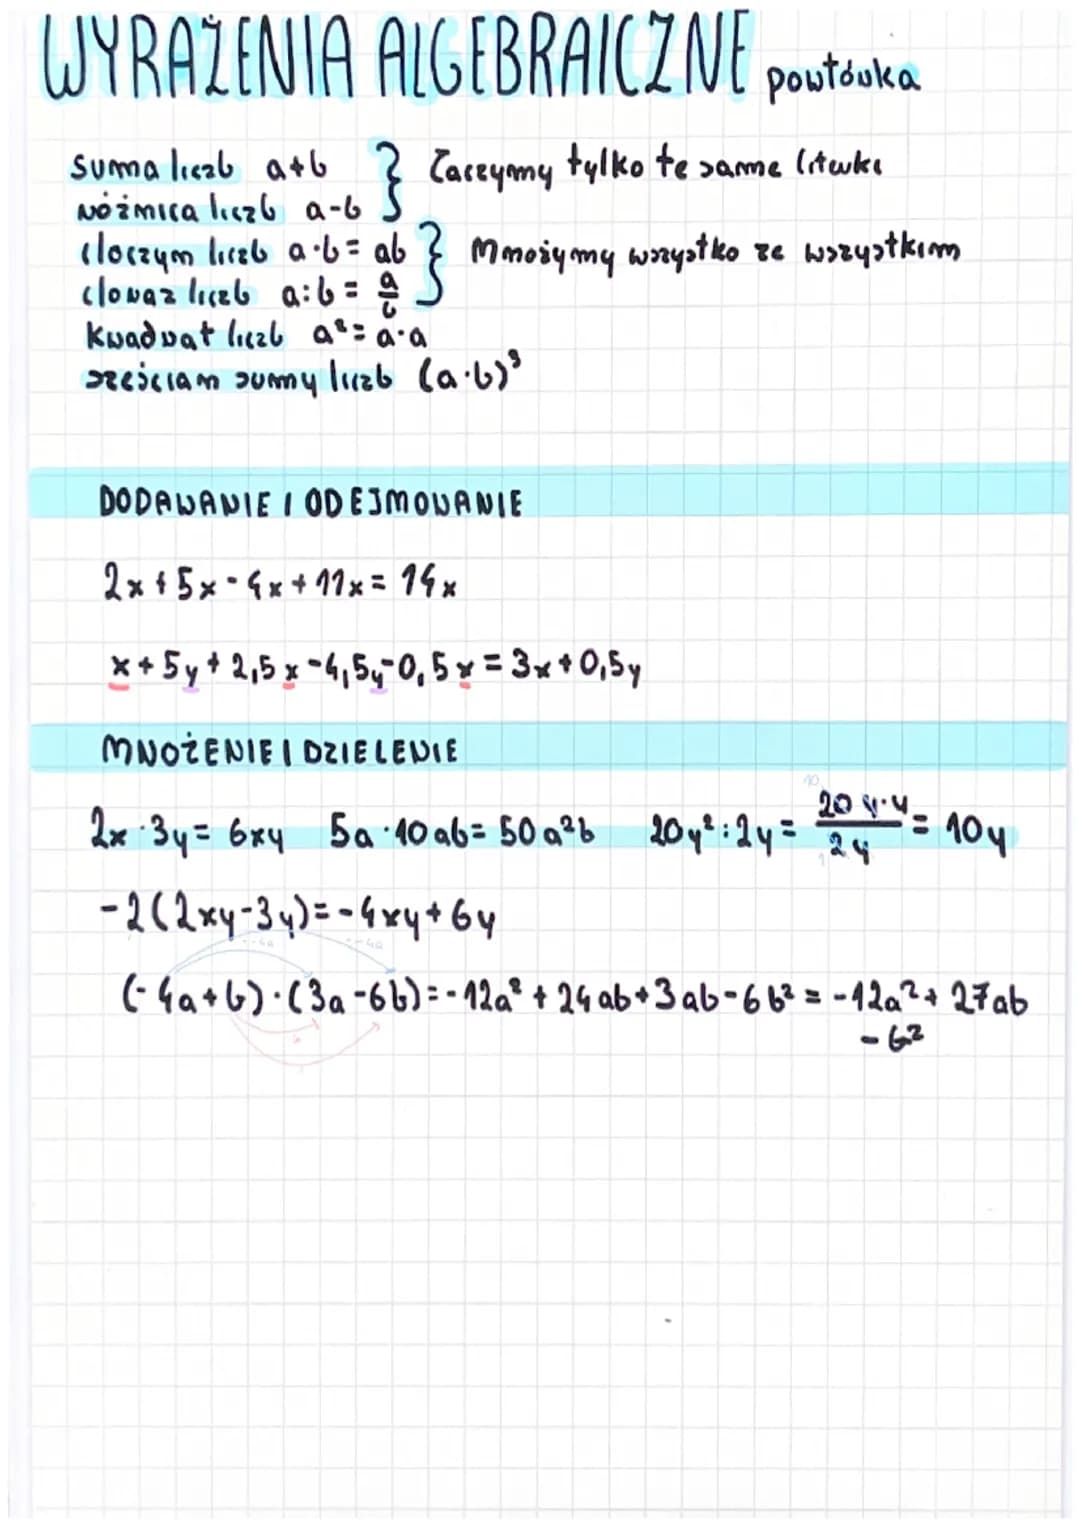 WYRAŻENIA ALGEBRAICZNE powtórka
suma liczb a+b } Łączymy tylko te same literki
różnica liczb a-b
iloczyn liczb a·b = ab } Mnożymy wszystko ze wszystkim
iloraz liczb a:b = a/b
kwadrat liczb a² = a·a
sześcian sumy liczb (a·b)³
DODAWANIE I ODEJMOWANIE
2x + 5x - 4x + 11x = 14x
x + 5y + 2,5x - 4,5y - 0,5x = 3x + 0,5y
MNOŻENIE I DZIELENIE
2x · 3y = 6xy 5a · 10ab = 50a²b 20y² : 2y = 20 y·y / 2y = 10y
-2(2xy - 3y) = -4xy + 6y
(-4a + b) · (3a - 6b) = -12a² + 24ab + 3ab - 6b² = -12a² + 27ab
- 6²